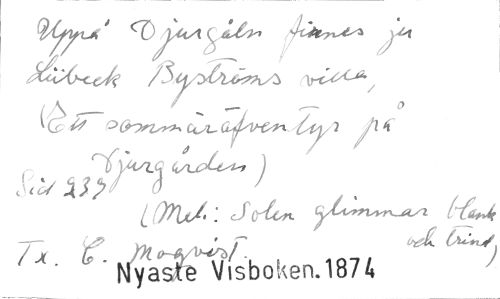 Uppå Djurgåln finnes ju
Lübeck Byströms villa,
(Ett sommaräfventyr på
Djurgården)
Sid 239
(Mel: Solen glimmar blank
och trind)
Tx. C. Moqvist.
Nyaste Visboken. 1874